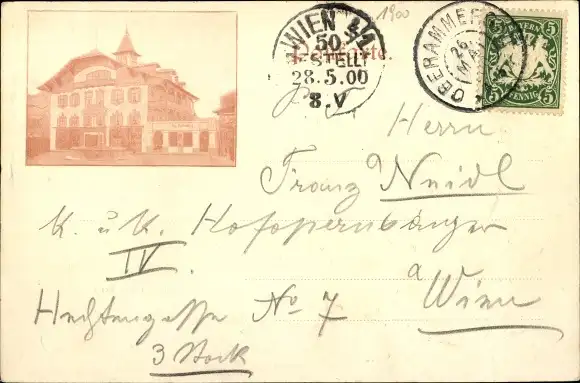 1900
WIEN
50
BESTELLT
28.5.00
8.V
OBERAMMER
26
MAI
BAYERN
5 5
PFENNIG
Herrn
Franz Neidl
K. u. K. Hofopernsänger
IV.
Wien
Hechtengasse No 7
3 Stock